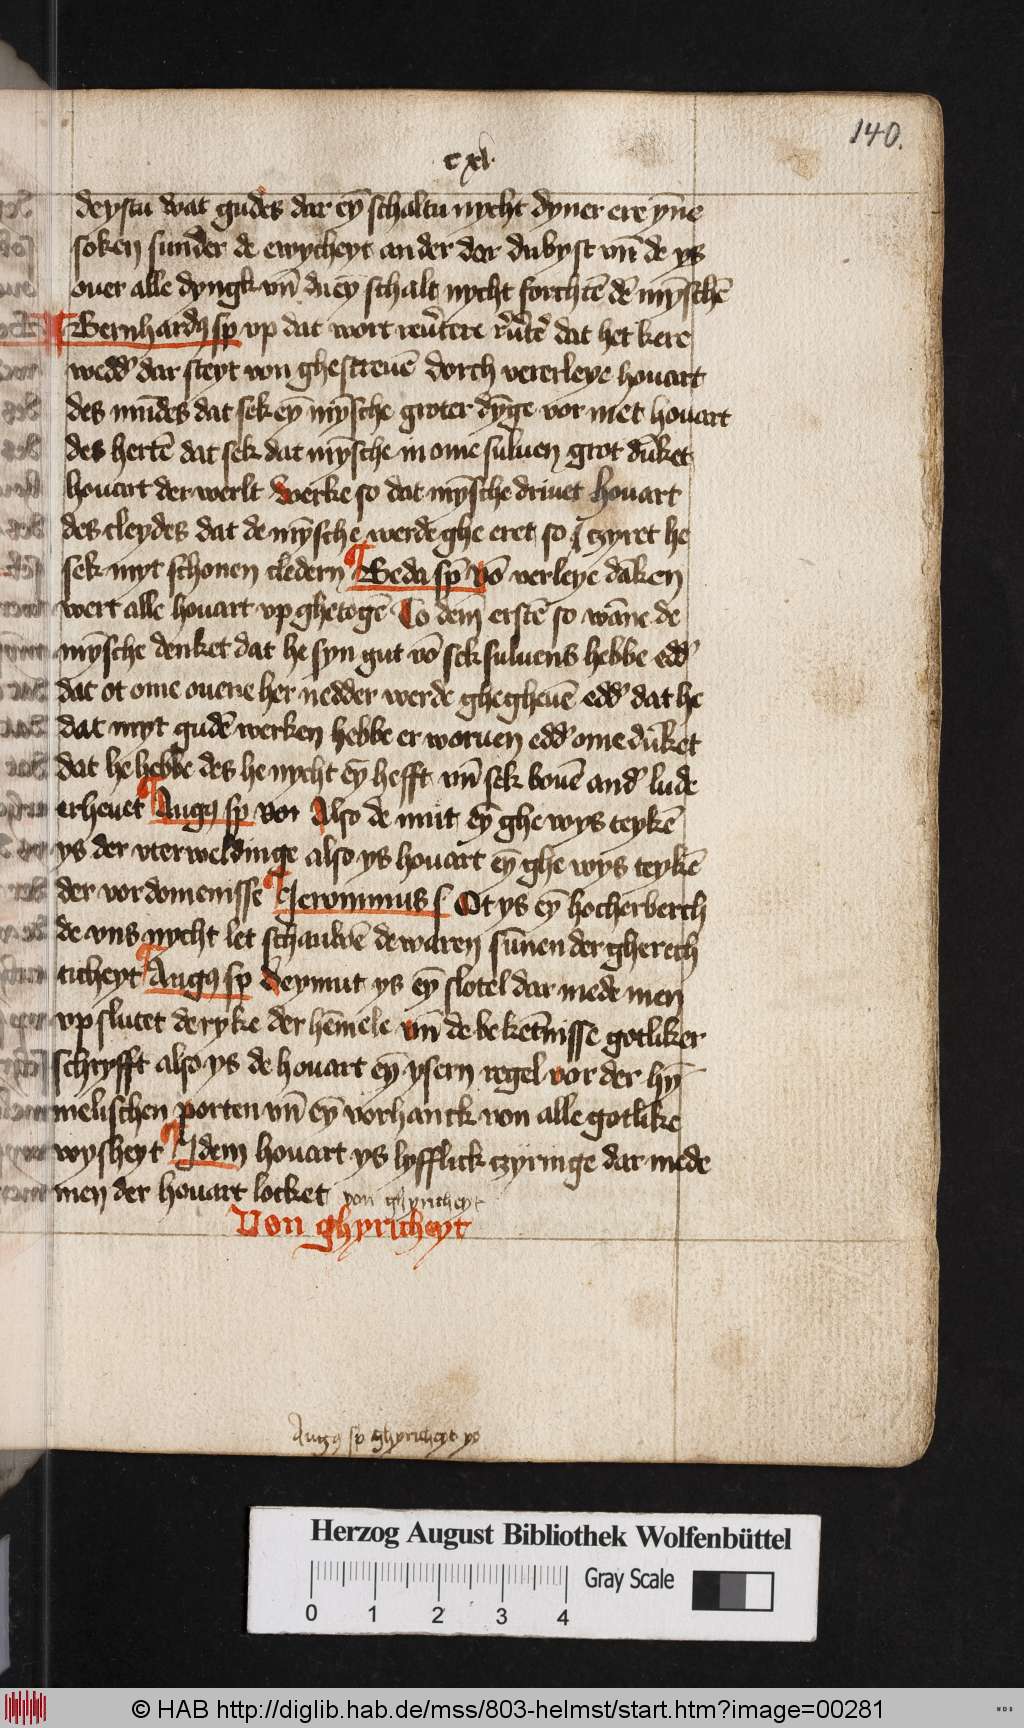 140.
cxl.
deystu wat gudes dar eȳ schaltu nycht dyner ere yñe
soken sunder de ewycheyt an der dar du byst vn̄ de ys
ouer alle dyngk vn̄ du eȳ schalt nycht forchtē dē mȳschē
Bernhardꝰ sp̄ vp dat wort dat het kere
wedd' dar steyt von ghestreuē dorch vererleye houart
des mūdes dat sek eȳ mȳsche groter dȳge vor met houart
des hertē dat sek dat mȳsche in ome suluen grot dūket
houart der werlt werke so dat mȳsche driuet houart
des cleydes dat de mȳsche werde ghe eret so czyret he
sek myt schonen cledern Beda sp̄ vō verleye daken
wert alle houart vp ghetogē To dem erstē so wāne de
mȳsche denket dat he syn gut vō sek suluens hebbe edd'
dat ot ome ouene her nedder werde ghegheuē edd' dat he
dat myt gudē werken hebbe er woruen edd' ome dūket
dat he hebbe des he nycht eȳ hefft vn̄ sek bouē and' lude
erheuet Augꝰ sp̄ von Also de mut eȳ ghe wys teykē
ys der vterweldinge also ys houart eȳ ghe wys teykē
der vordomenisse Jeronimus s Ot ys eȳ hocherberch
de vns nycht let schauwē de waren sūnen der gherech
ticheyt Augꝰ sp̄ deymut ys eȳ slotel dar mede men
vp slutet de ryke der hēmele vn̄ de bekētnisse gotliker
schryfft also ys de houart eȳ ysern regel vor der hȳ
melischen porten vn̄ eȳ vorhanck von alle gotlike
wysheyt Idem houart ys lyfflick czyringe dar mede
men der houart locket von ghyricheyt
Von ghyricheyt
Augꝰ sp̄ ghyricheyt ys
Herzog August Bibliothek Wolfenbüttel
Gray Scale
0 1 2 3 4
© HAB http://diglib.hab.de/mss/803-helmst/start.htm?image=00281